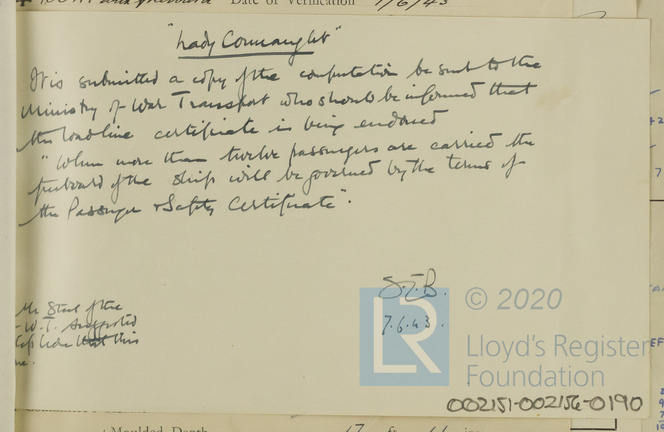 Date of Verification 7/6/43
"Lady Connaught"
It is submitted a copy of the computation be sent to the
Ministry of War Transport who should be informed that
this loadline certificate is being endorsed
"When more than twelve passengers are carried the
freeboard of the ship will be governed by the terms of
the Passenger & Safety Certificate".
S.E.B.
7.6.43.
Mr Steel of the
W.T. suggested
this
LR
© 2020
Lloyd's Register
Foundation
002151-002156-0190
Moulded Depth